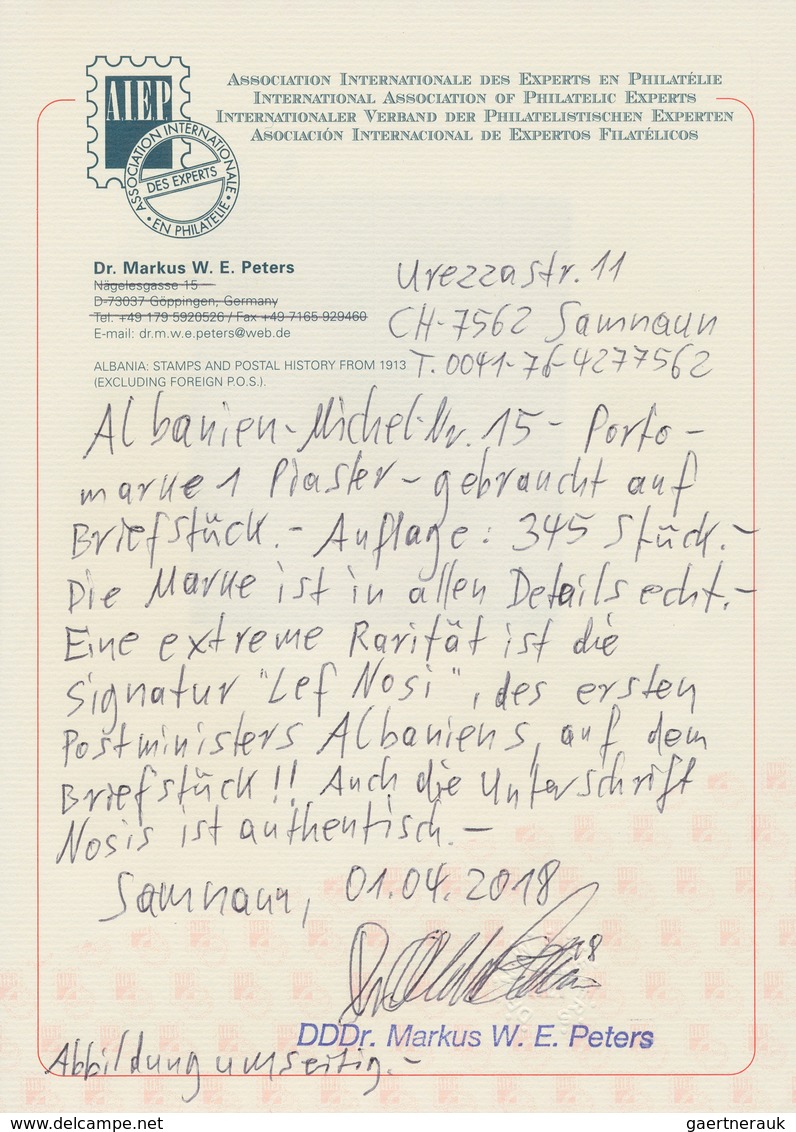 A.I.E.P.
ASSOCIATION INTERNATIONALE
DES EXPERTS
• EN PHILATELIE •
ASSOCIATION INTERNATIONALE DES EXPERTS EN PHILATÉLIE
INTERNATIONAL ASSOCIATION OF PHILATELIC EXPERTS
INTERNATIONALER VERBAND DER PHILATELISTISCHEN EXPERTEN
ASOCIACIÓN INTERNACIONAL DE EXPERTOS FILATÉLICOS
Dr. Markus W. E. Peters
Nägelesgasse 15
D-73037 Göppingen, Germany
Tel. +49 179 5920526 / Fax +49 7165 929460
E-mail: dr.m.w.e.peters@web.de
Urezzastr. 11
CH-7562 Samnaun
T. 0041-76-4277562
ALBANIA: STAMPS AND POSTAL HISTORY FROM 1913
(EXCLUDING FOREIGN P.O.S.).
Albanien-Michel-Nr. 15 - Porto-
marke 1 Piaster - gebraucht auf
Briefstück. - Auflage: 345 Stück. -
Die Marke ist in allen Details echt. -
Eine extreme Rarität ist die
Signatur "Lef Nosi", des ersten
Postministers Albaniens, auf dem
Briefstück!! Auch die Unterschrift
Nosis ist authentisch. -
Samnaun, 01.04.2018
DDDr. Markus W. E. Peters
Abbildung umseitig. -
www.delcampe.net
gaertnerauk